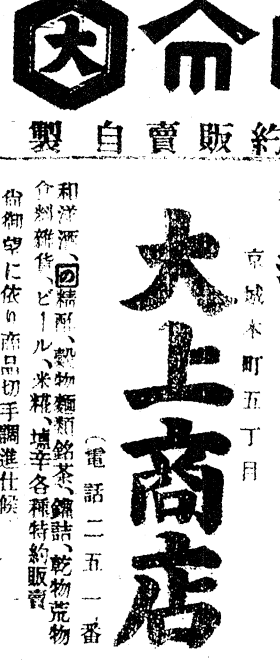 大
製自賣販約
京城本町五丁目
大上商店
（電話二五一番
和洋酒、の精酢、穀物麵類銘茶、鑵詰、乾物荒物
食料雜貨、ビール、米糀、塩辛各種特約販賣
尙御望に依り商品切手調進仕候